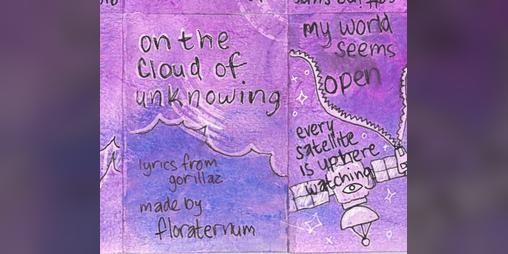 on the
cloud of
unknowing
lyrics from
gorillaz
made by
floraternum
my world
seems
open
every
satellite
is up here
watching